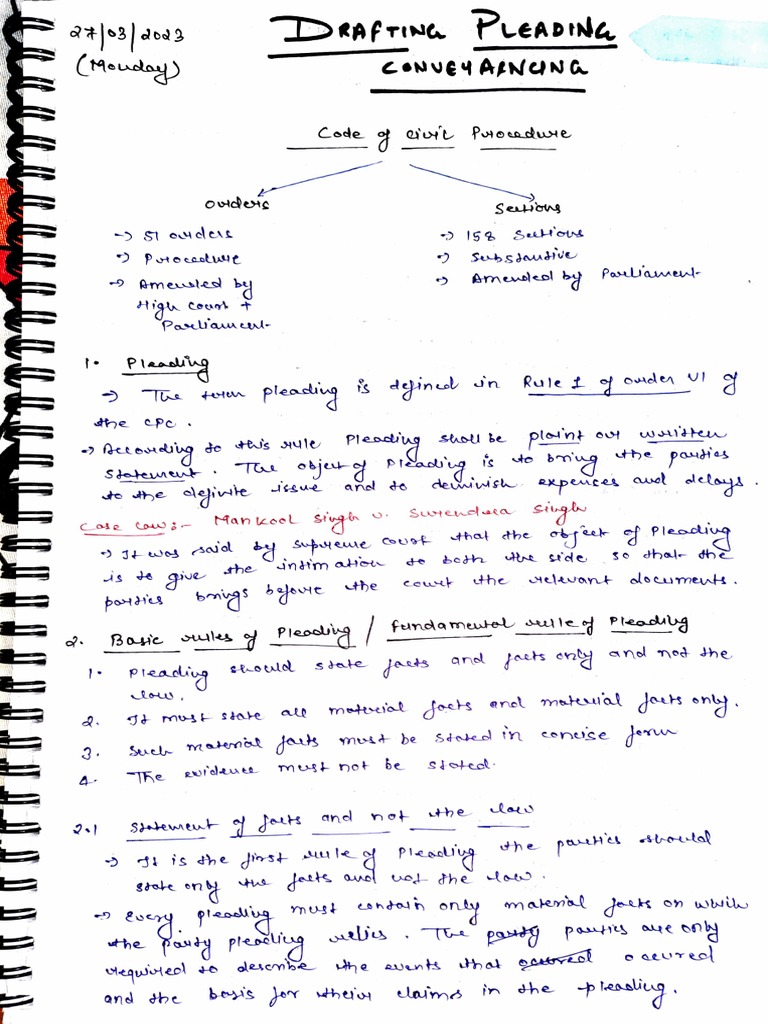 27/03/2023
(Monday)
DRAFTING PLEADING
CONVEYARNCING
Code of Civil Procedure
Orders
-> 51 orders
-> Procedure
-> Amended by
High court +
Parliament
Sections
-> 158 Sections
-> Substantive
-> Amended by Parliament
1. Pleading
-> The term pleading is defined in Rule 1 of order VI of
the CPC.
-> According to this rule Pleading shall be plaint or written
statement. The object of Pleading is to bring the parties
to the definite issue and to deminish expences and delays.
Case Law:- Mankool Singh v. Surendra Singh
-> It was said by supreme court that the object of Pleading
is to give the intimation to both the side so that the
parties brings before the court the relevant documents.
2. Basic rules of Pleading / fundamental rule of Pleading
1. Pleading should state facts and facts only and not the
law.
2. It must state all material facts and material facts only.
3. Such material facts must be stated in concise form
4. The evidence must not be stated.
2.1 Statement of facts and not the law
-> It is the first rule of Pleading the parties should
state only the facts and not the law.
-> Every pleading must contain only material facts on which
the party pleading relies. The party parties are only
required to describe the events that occured occured
and the basis for their claims in the pleading.